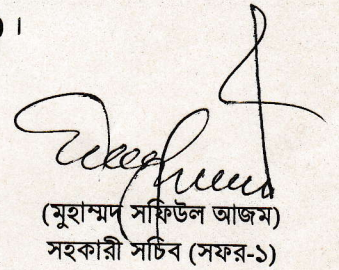 )।
(মুহাম্মদ সফিউল আজম)
সহকারী সচিব (সফর-১)